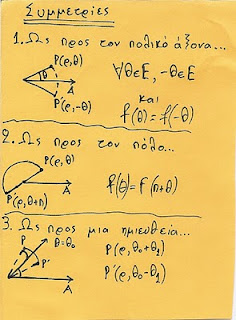 Συμμετρίες
1. Ως προς τον πολικό άξονα...
P(ρ,θ)
θ
A
P'(ρ,-θ)
∀θ∈E, -θ∈E
και
f(θ)=f(-θ)
2. Ως προς τον πόλο...
P(ρ,θ)
A
P'(ρ,θ+π)
f(θ)=f(π+θ)
3. Ως προς μια ημιευθεία...
P
θ=θ₀
P'
A
P(ρ,θ₀+θ₁)
P'(ρ,θ₀-θ₁)